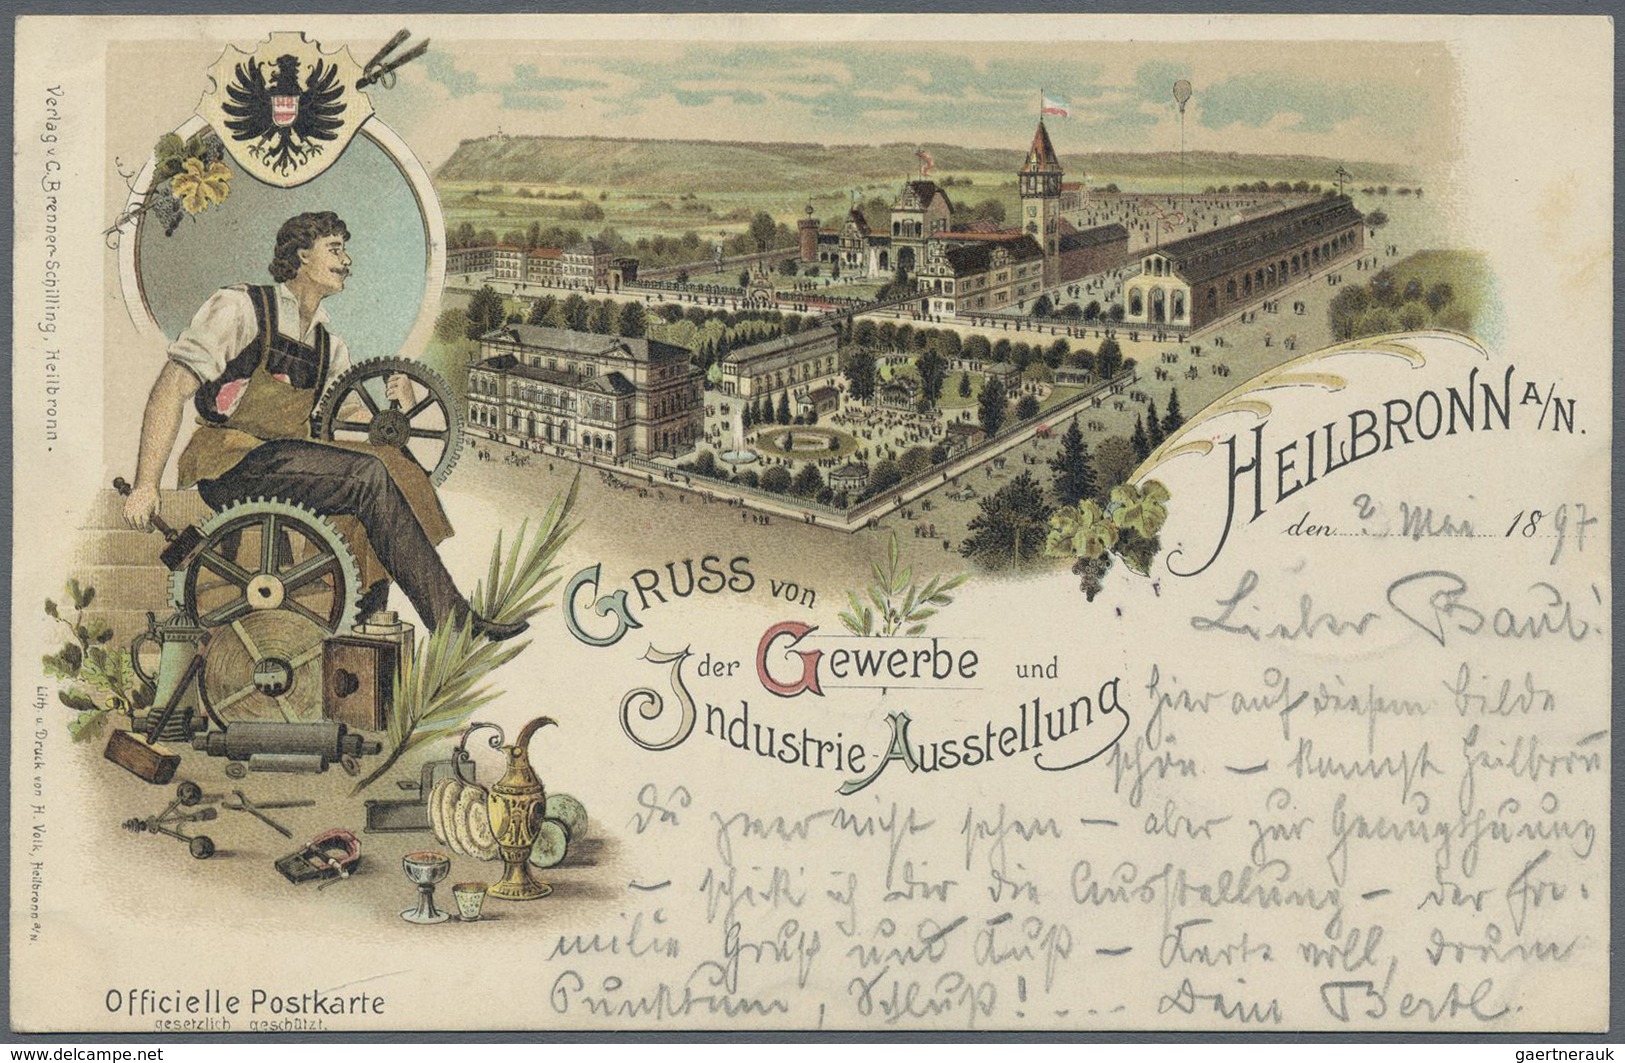 Verlag v. C. Brenner-Schilling, Heilbronn.
Lith. u. Druck von H. Volk, Heilbronn a/N.
HB
HEILBRONN A/N.
den 2 Mai 1897
GRUSS von
der Gewerbe und
Industrie-Ausstellung
Lieber Paul!
Hier auf diesem Bilde
schön – kannst Heilbronn
Du zwar nicht sehen – aber zur Genugthuung
– schick ich Dir die Ausstellung – der Fa-
milie Gruß und Kuß – Karte voll, drum
Punktum, Schluß!... Dein Bertl.
Officielle Postkarte
gesetzlich geschützt.
www.delcampe.net
gaertnerauk